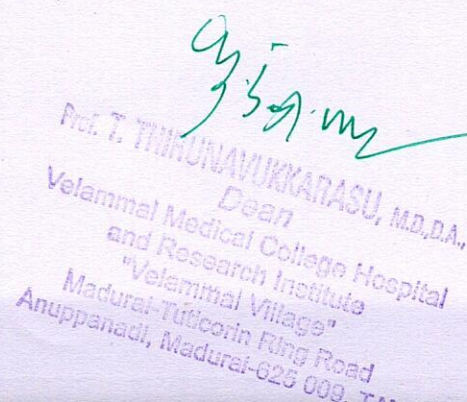 Prof. T. THIRUNAVUKKARASU, M.D.,D.A.,
Dean
Velammal Medical College Hospital
and Research Institute
"Velammal Village"
Madurai-Tuticorin Ring Road
Anuppanadi, Madurai-625 009.